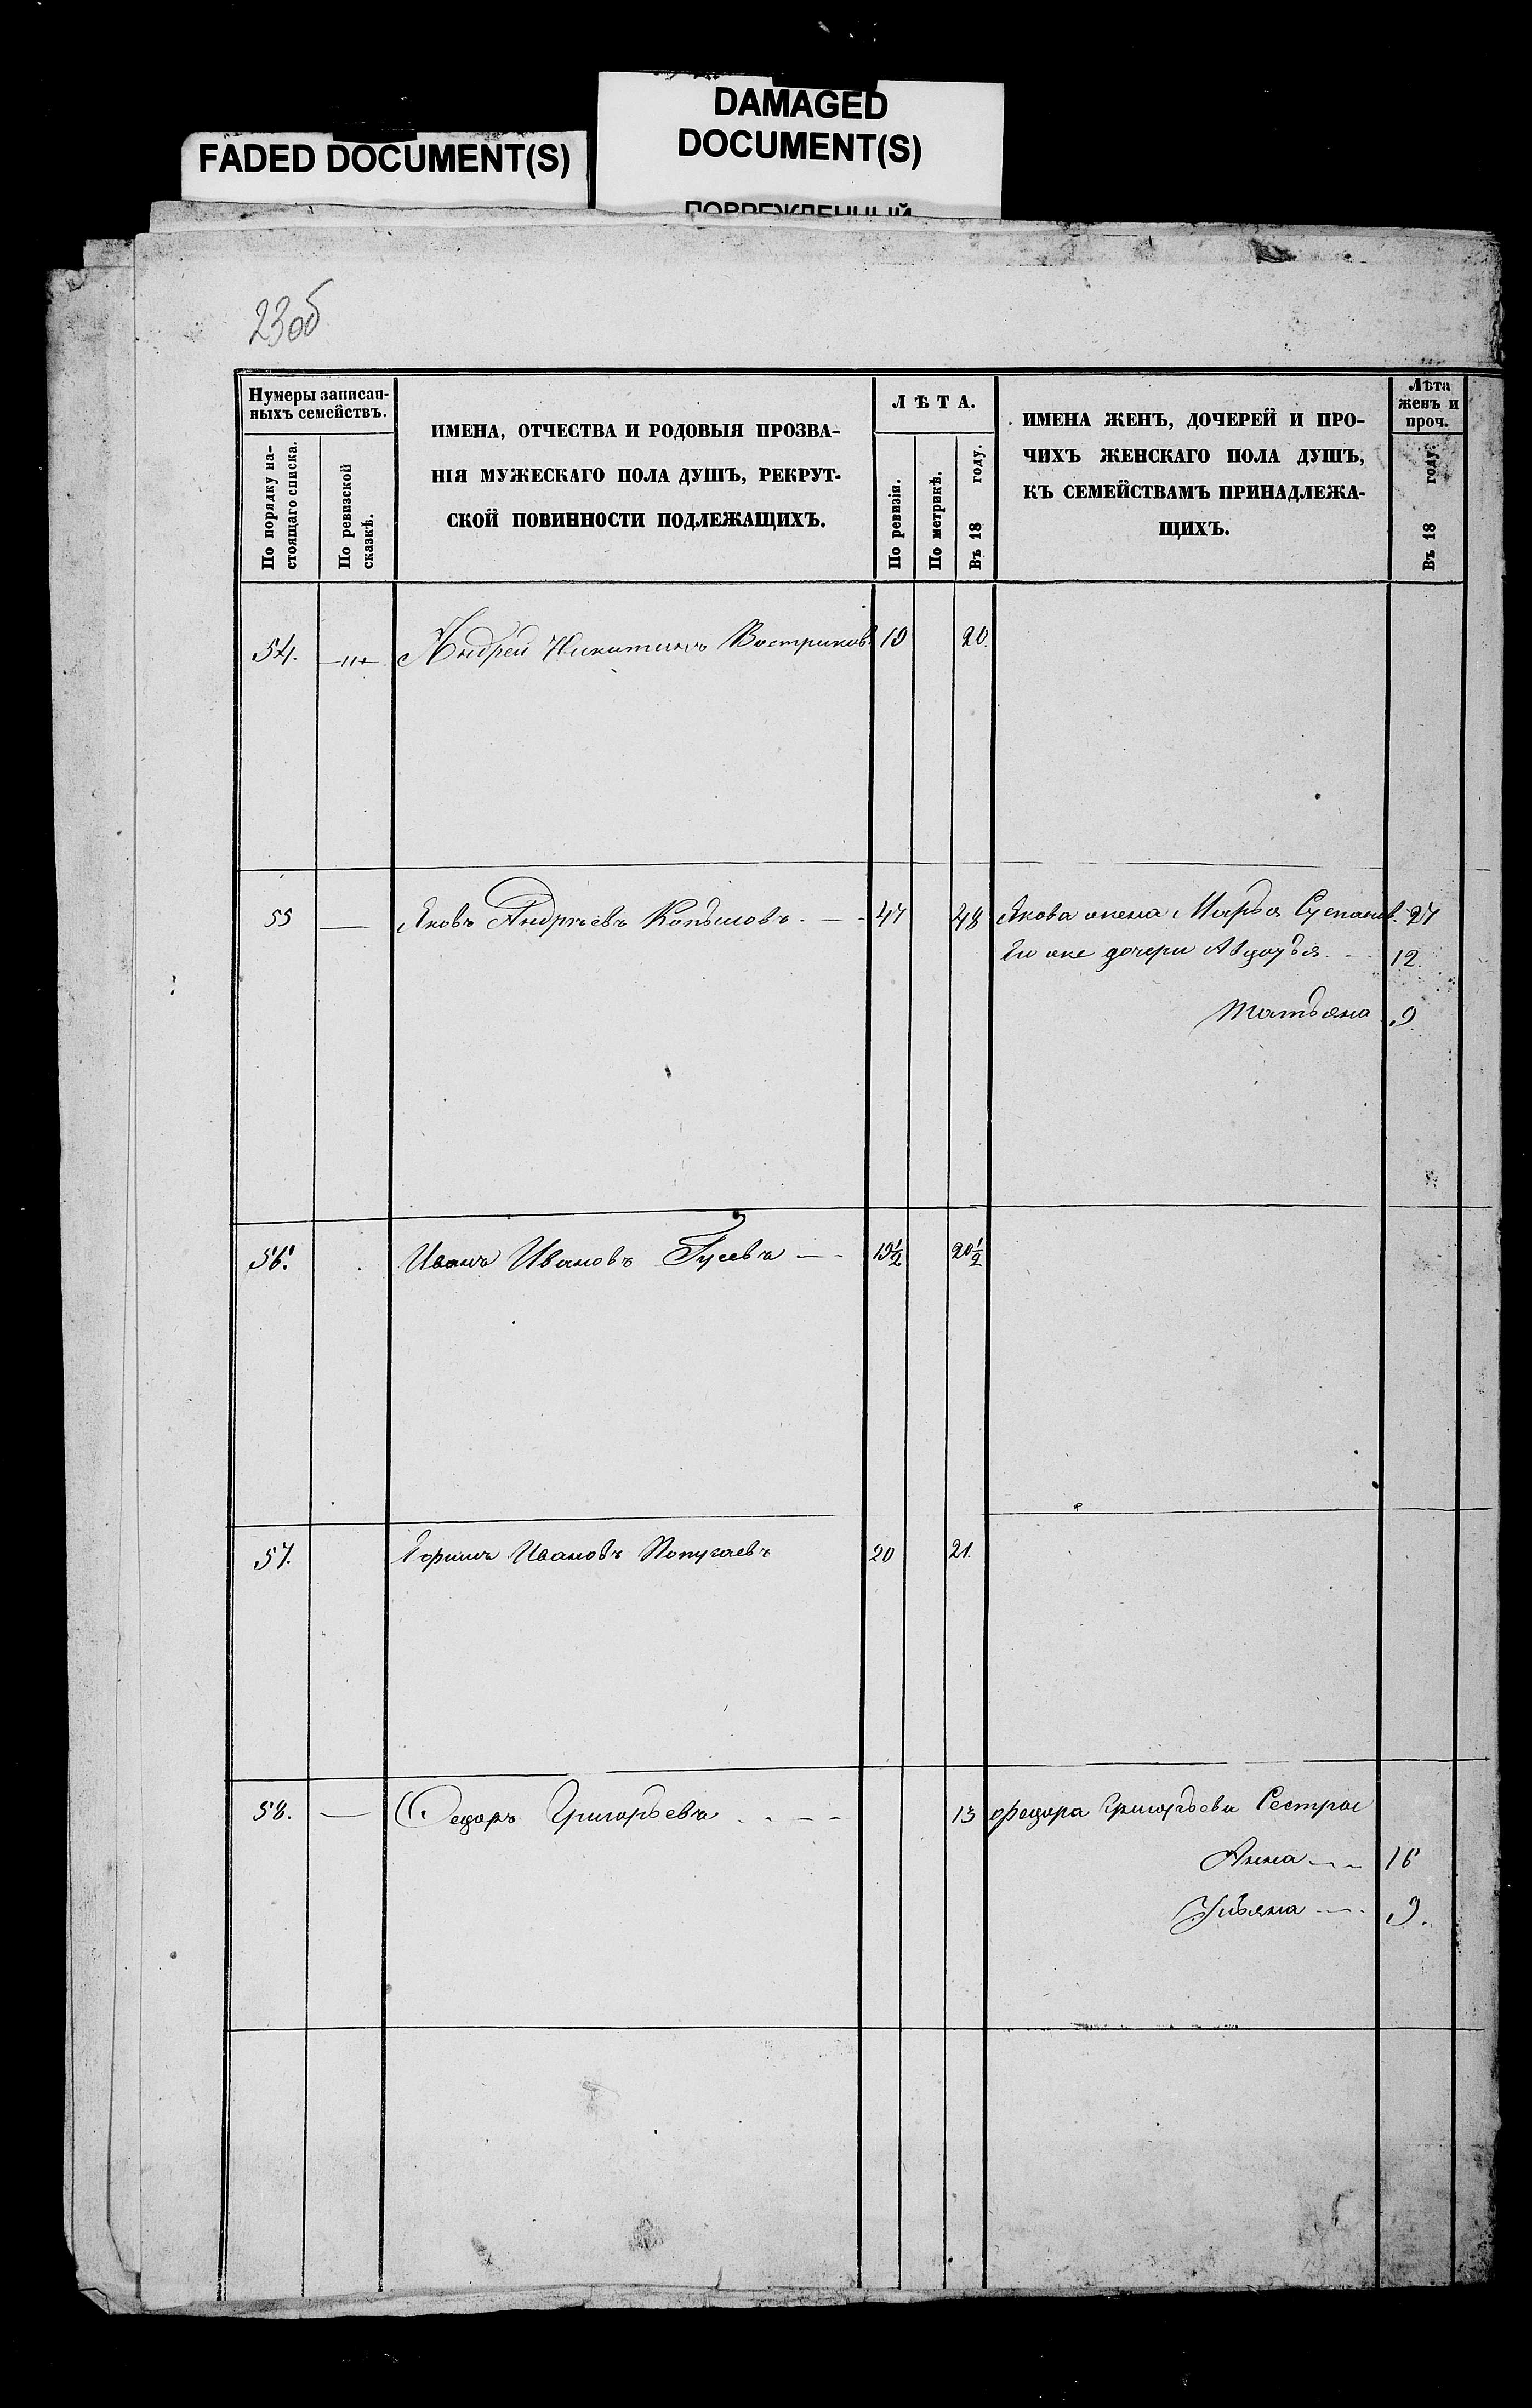 FADED DOCUMENT(S)
DAMAGED
DOCUMENT(S)
ПОВРЕЖДЕННЫЙ
23об
Нумеры записан-
ныхъ семействъ.
По порядку на-
стоящаго списка.
По ревизской
сказкѣ.
ИМЕНА, ОТЧЕСТВА И РОДОВЫЯ ПРОЗВА-
НІЯ МУЖЕСКАГО ПОЛА ДУШЪ, РЕКРУТ-
СКОЙ ПОВИННОСТИ ПОДЛЕЖАЩИХЪ.
ЛѢТА.
По ревизіи.
По метрикѣ.
Въ 18 году.
ИМЕНА ЖЕНЪ, ДОЧЕРЕЙ И ПРО-
ЧИХЪ ЖЕНСКАГО ПОЛА ДУШЪ,
КЪ СЕМЕЙСТВАМЪ ПРИНАДЛЕЖА-
ЩИХЪ.
Лѣта
женъ и
проч.
Въ 18 году.
54. —"— Андрей Никитинъ Востриков. 19 20.
55 — Яковъ Андреевъ Копыловъ. — 47 48 Якова жена Марья Степанов. 27
Его же дочери Авдотья. — 12.
Татьяна 9
56. Иванъ Ивановъ Гусевъ — 19½ 20½
57. Ефимъ Ивановъ Попугаевъ 20 21.
58. — Федоръ Григорьевъ 13 Федора Григорьева Сестры
Анна — 16
Ульяна — 9.